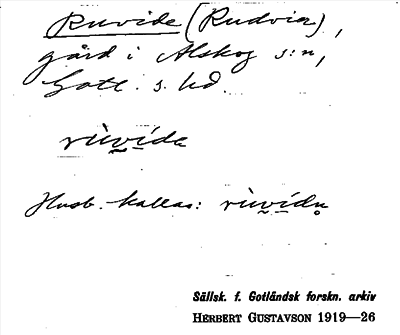 Ruvide (Rudvier),
gård i Alskog s:n,
Gotl. s. hd.
rùvída
Husb. kallas: rùvídu̥
Sällsk. f. Gotländsk forskn. arkiv
HERBERT GUSTAVSON 1919—26